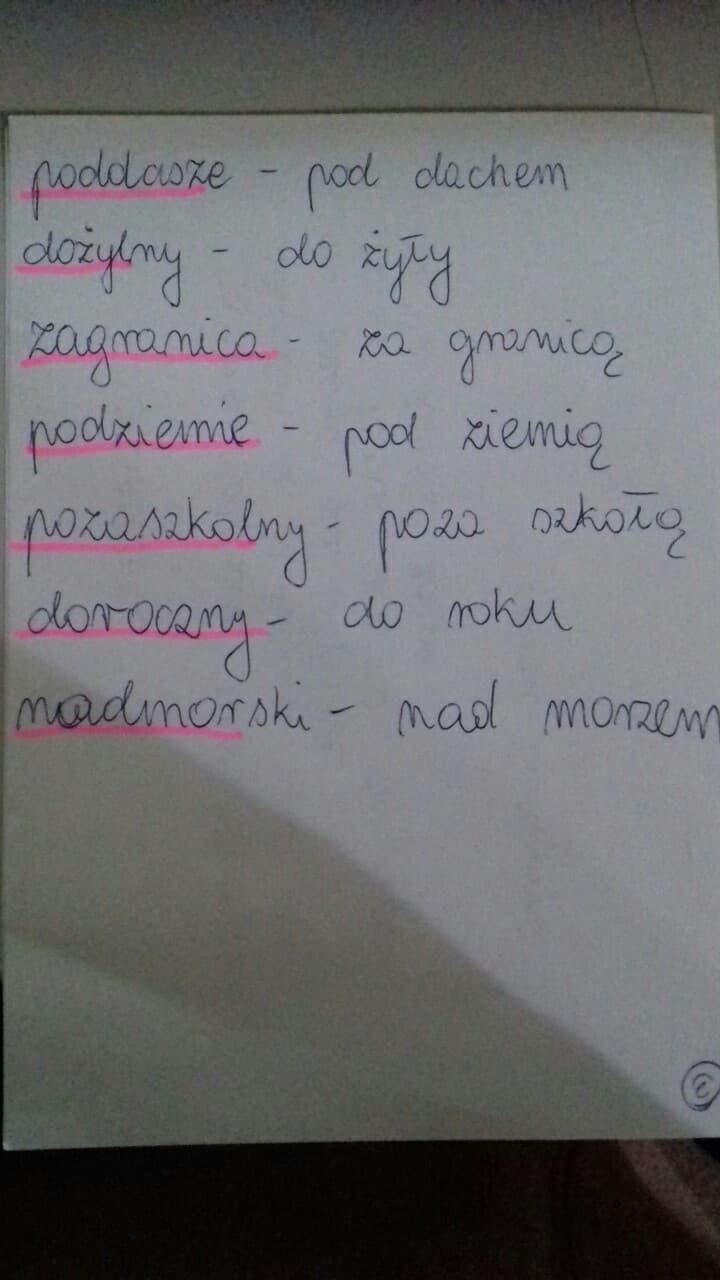 poddasze - pod dachem
dożylny - do żyły
zagranica - za granicą
podziemie - pod ziemią
pozaszkolny - poza szkołą
doroczny - do roku
nadmorski - nad morzem